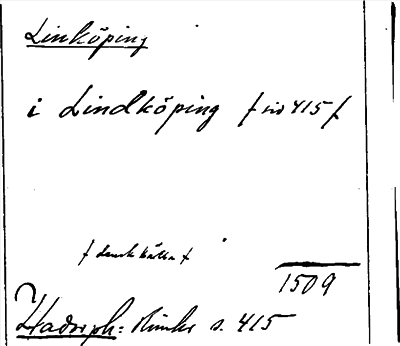 Linköping
i Lindköping / sid 415 /
/ dansk källa /
1509
Hadorph: Rimkr s. 415